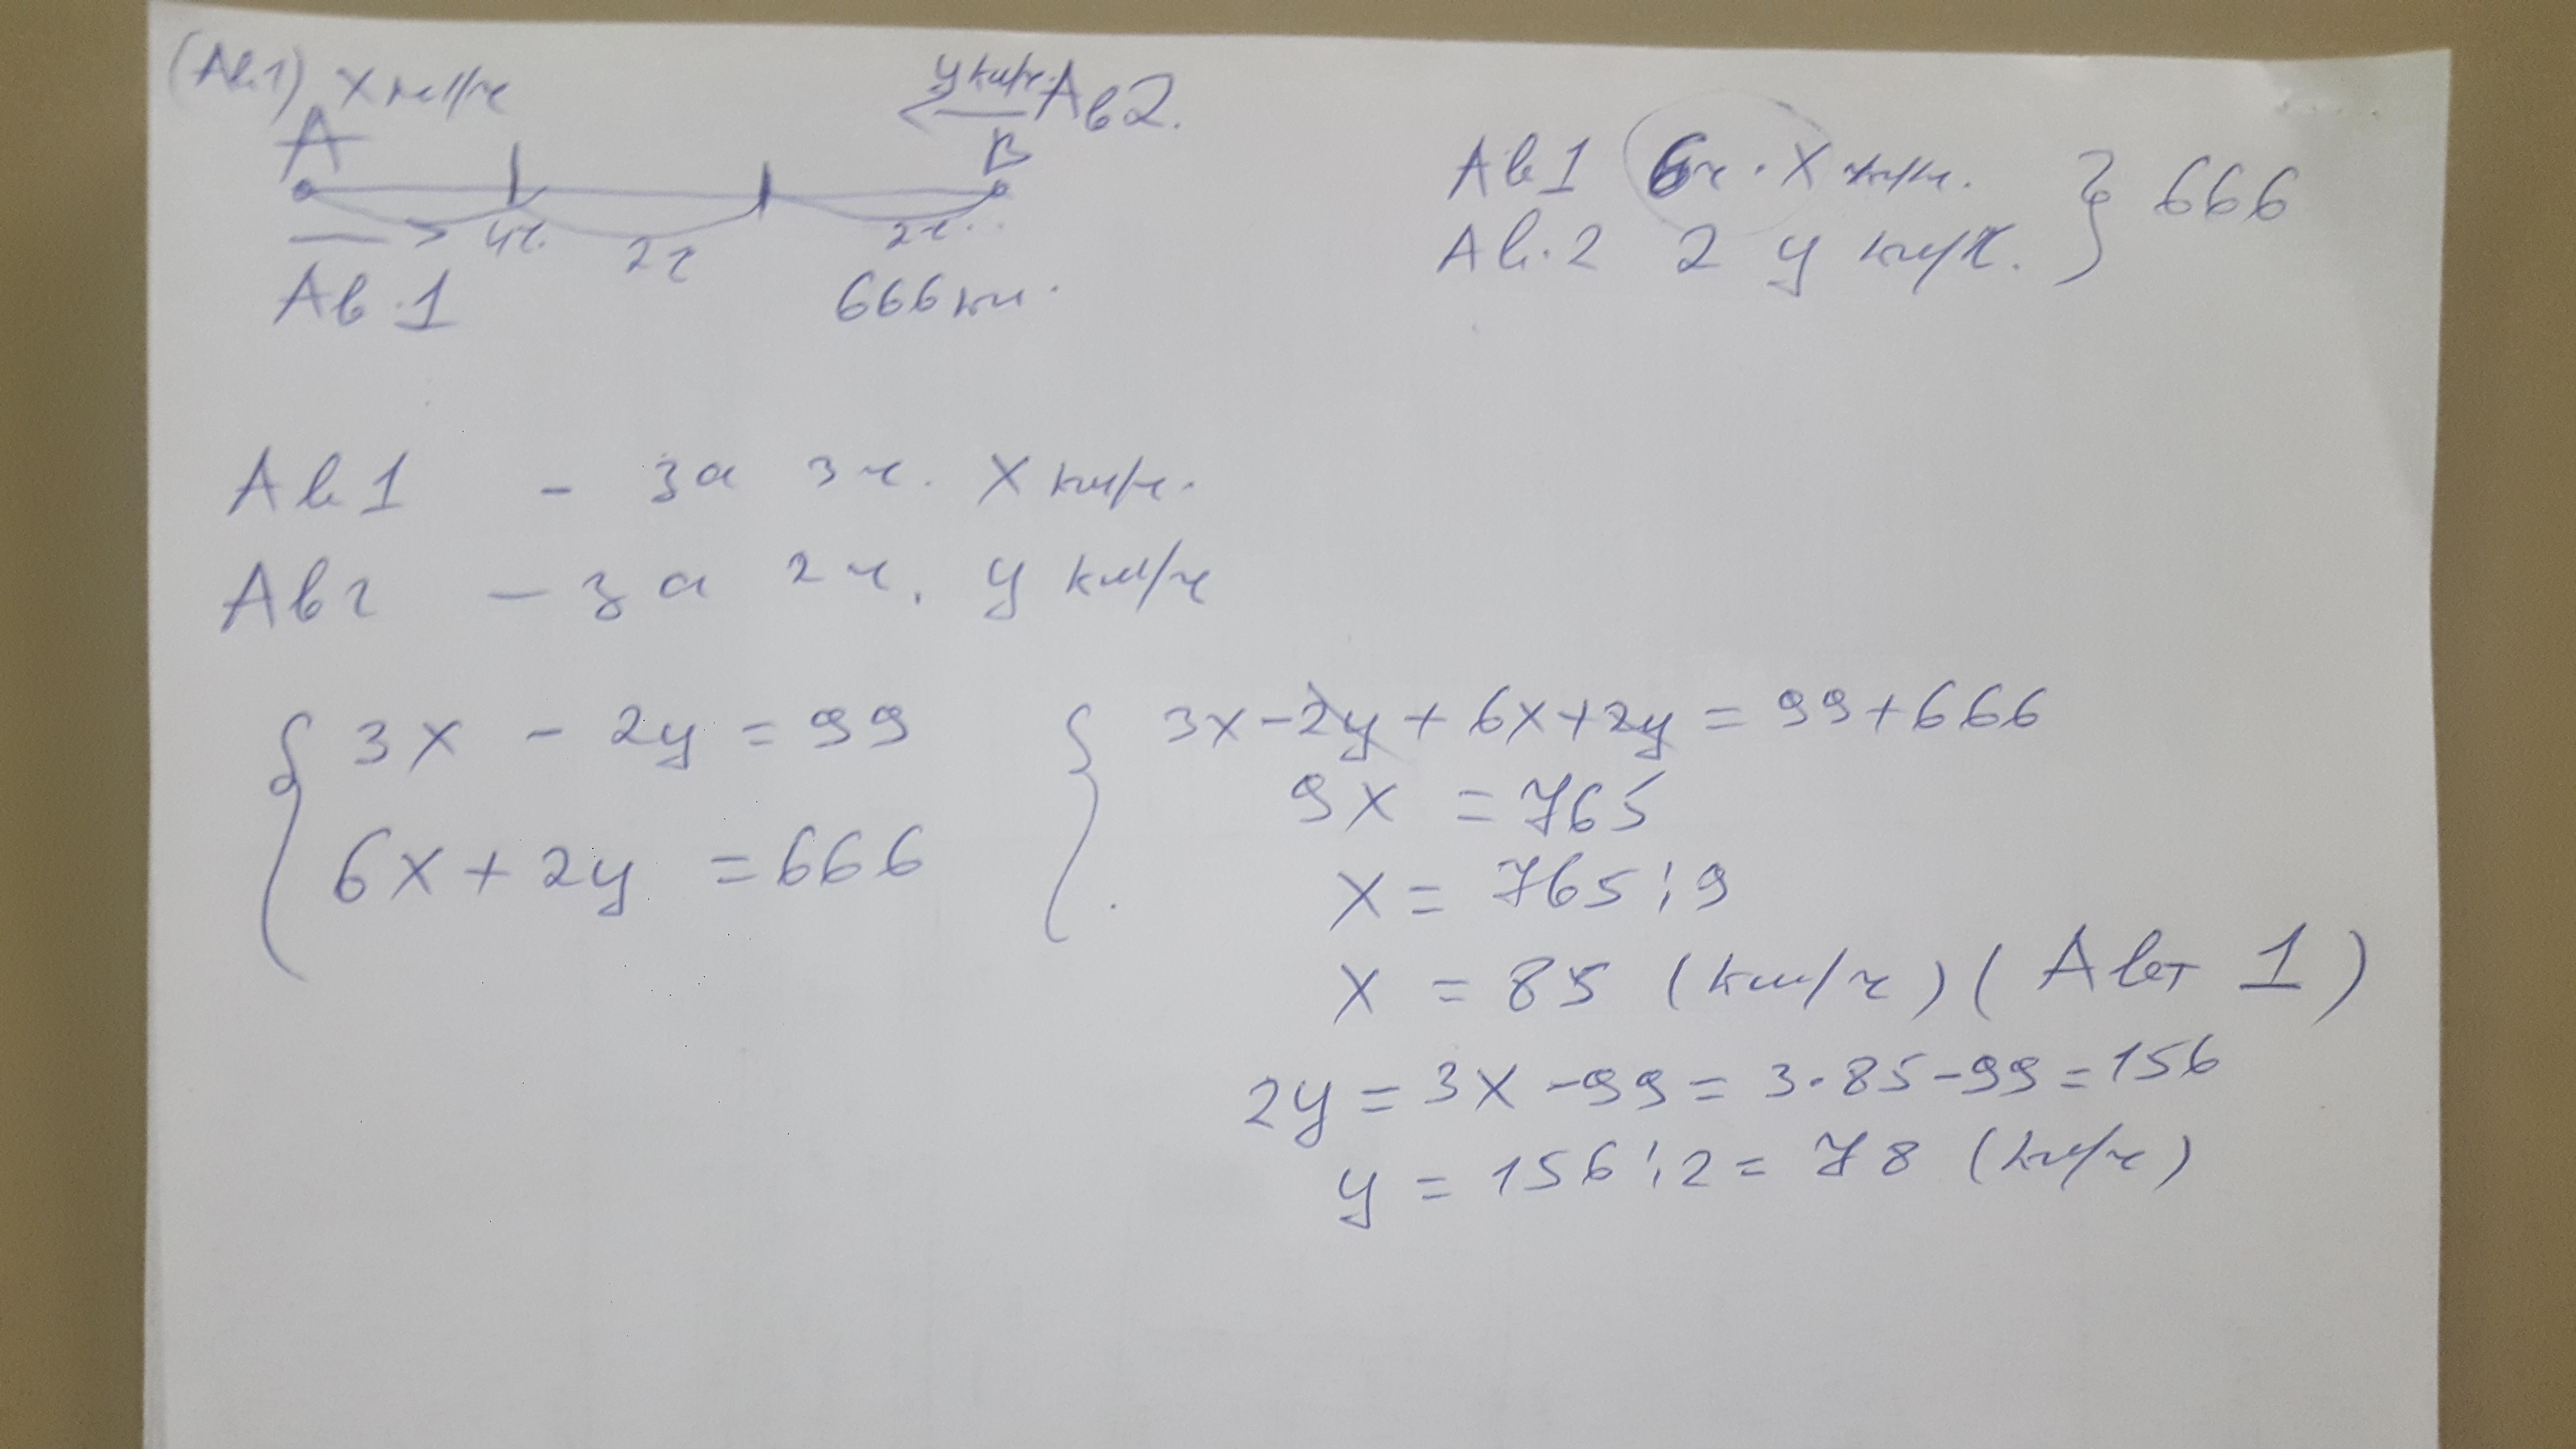 (Ав.1) x км/ч
y км/ч. Ав2.
A
B
4ч. 2ч 2ч.
Ав.1
666 км.
Ав1 6ч. · x км/ч.
Ав.2 2 y км/ч. } 666
Ав1 - за 3ч. x км/ч.
Ав2 - за 2ч. y км/ч
{ 3x - 2y = 99
6x + 2y = 666
{ 3x - 2y + 6x + 2y = 99 + 666
9x = 765
x = 765 : 9
x = 85 (км/ч) (Авт 1)
2y = 3x - 99 = 3·85 - 99 = 156
y = 156 : 2 = 78 (км/ч)